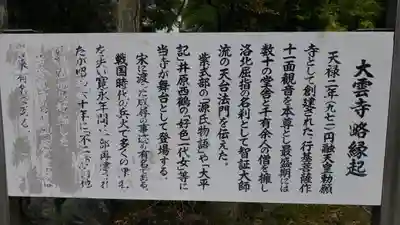 大雲寺略縁起
天禄二年(九七一)円融天皇勅願
寺として創建された。行基菩薩作
十一面観音を本尊とし最盛期には
数十の堂舎と千有余人の僧を擁し
洛北屈指の名刹として智証大師
流の天台法門を伝えた。
紫式部の「源氏物語」や「太平
記」井原西鶴の「好色一代女」等に
当寺が舞台として登場する。
宋に渡った成尋の事蹟が有名である。
戦国時代の兵火で多くの
を失い寛永年間に一部再建
たが昭和六十年に